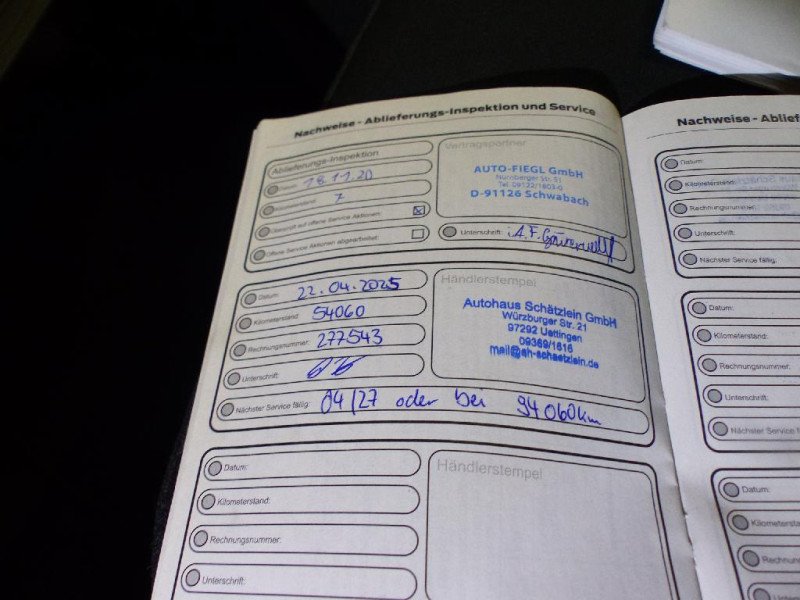 Nachweise - Ablieferungs-Inspektion und Service
Ablieferungs-Inspektion
18.11.20
Kilometerstand: 7
Überprüft auf offene Service Aktionen:
Offene Service Aktionen abgearbeitet:
Vertragspartner
AUTO-FIEGL GmbH
Nürnberger Str. 51
Tel. 09122/1803-0
D-91126 Schwabach
Unterschrift:
Datum: 22.04.2025
Kilometerstand: 54060
Rechnungsnummer: 277543
Unterschrift:
Nächster Service fällig: 04/27 oder bei 94060km
Händlerstempel
Autohaus Schätzlein GmbH
Würzburger Str. 21
97292 Uettingen
09369/1616
mail@ah-schaetzlein.de
Datum:
Kilometerstand:
Rechnungsnummer:
Unterschrift:
Händlerstempel
Nachweise - Ablief
Datum:
Kilometerstand:
Rechnungsnummer:
Unterschrift:
Nächster Service fällig:
Datum:
Kilometerstand:
Rechnungsnummer:
Unterschrift:
Nächster Service fällig:
Datum:
Kilometerstand
Rechnungsnum
Unterschrift: